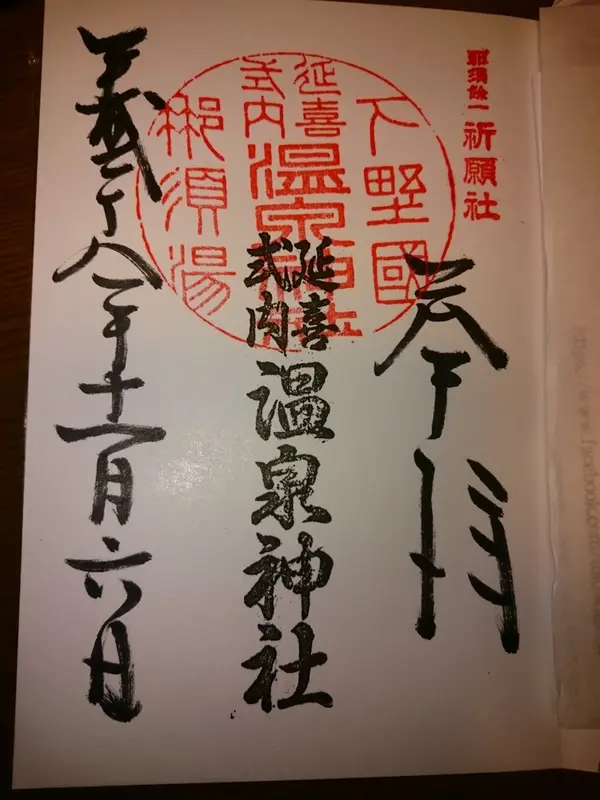 那須餘一 祈願社
奉拝
下野國
延喜式内 温泉神社
那須湯
延喜式内 温泉神社
平成二十八年十一月六日